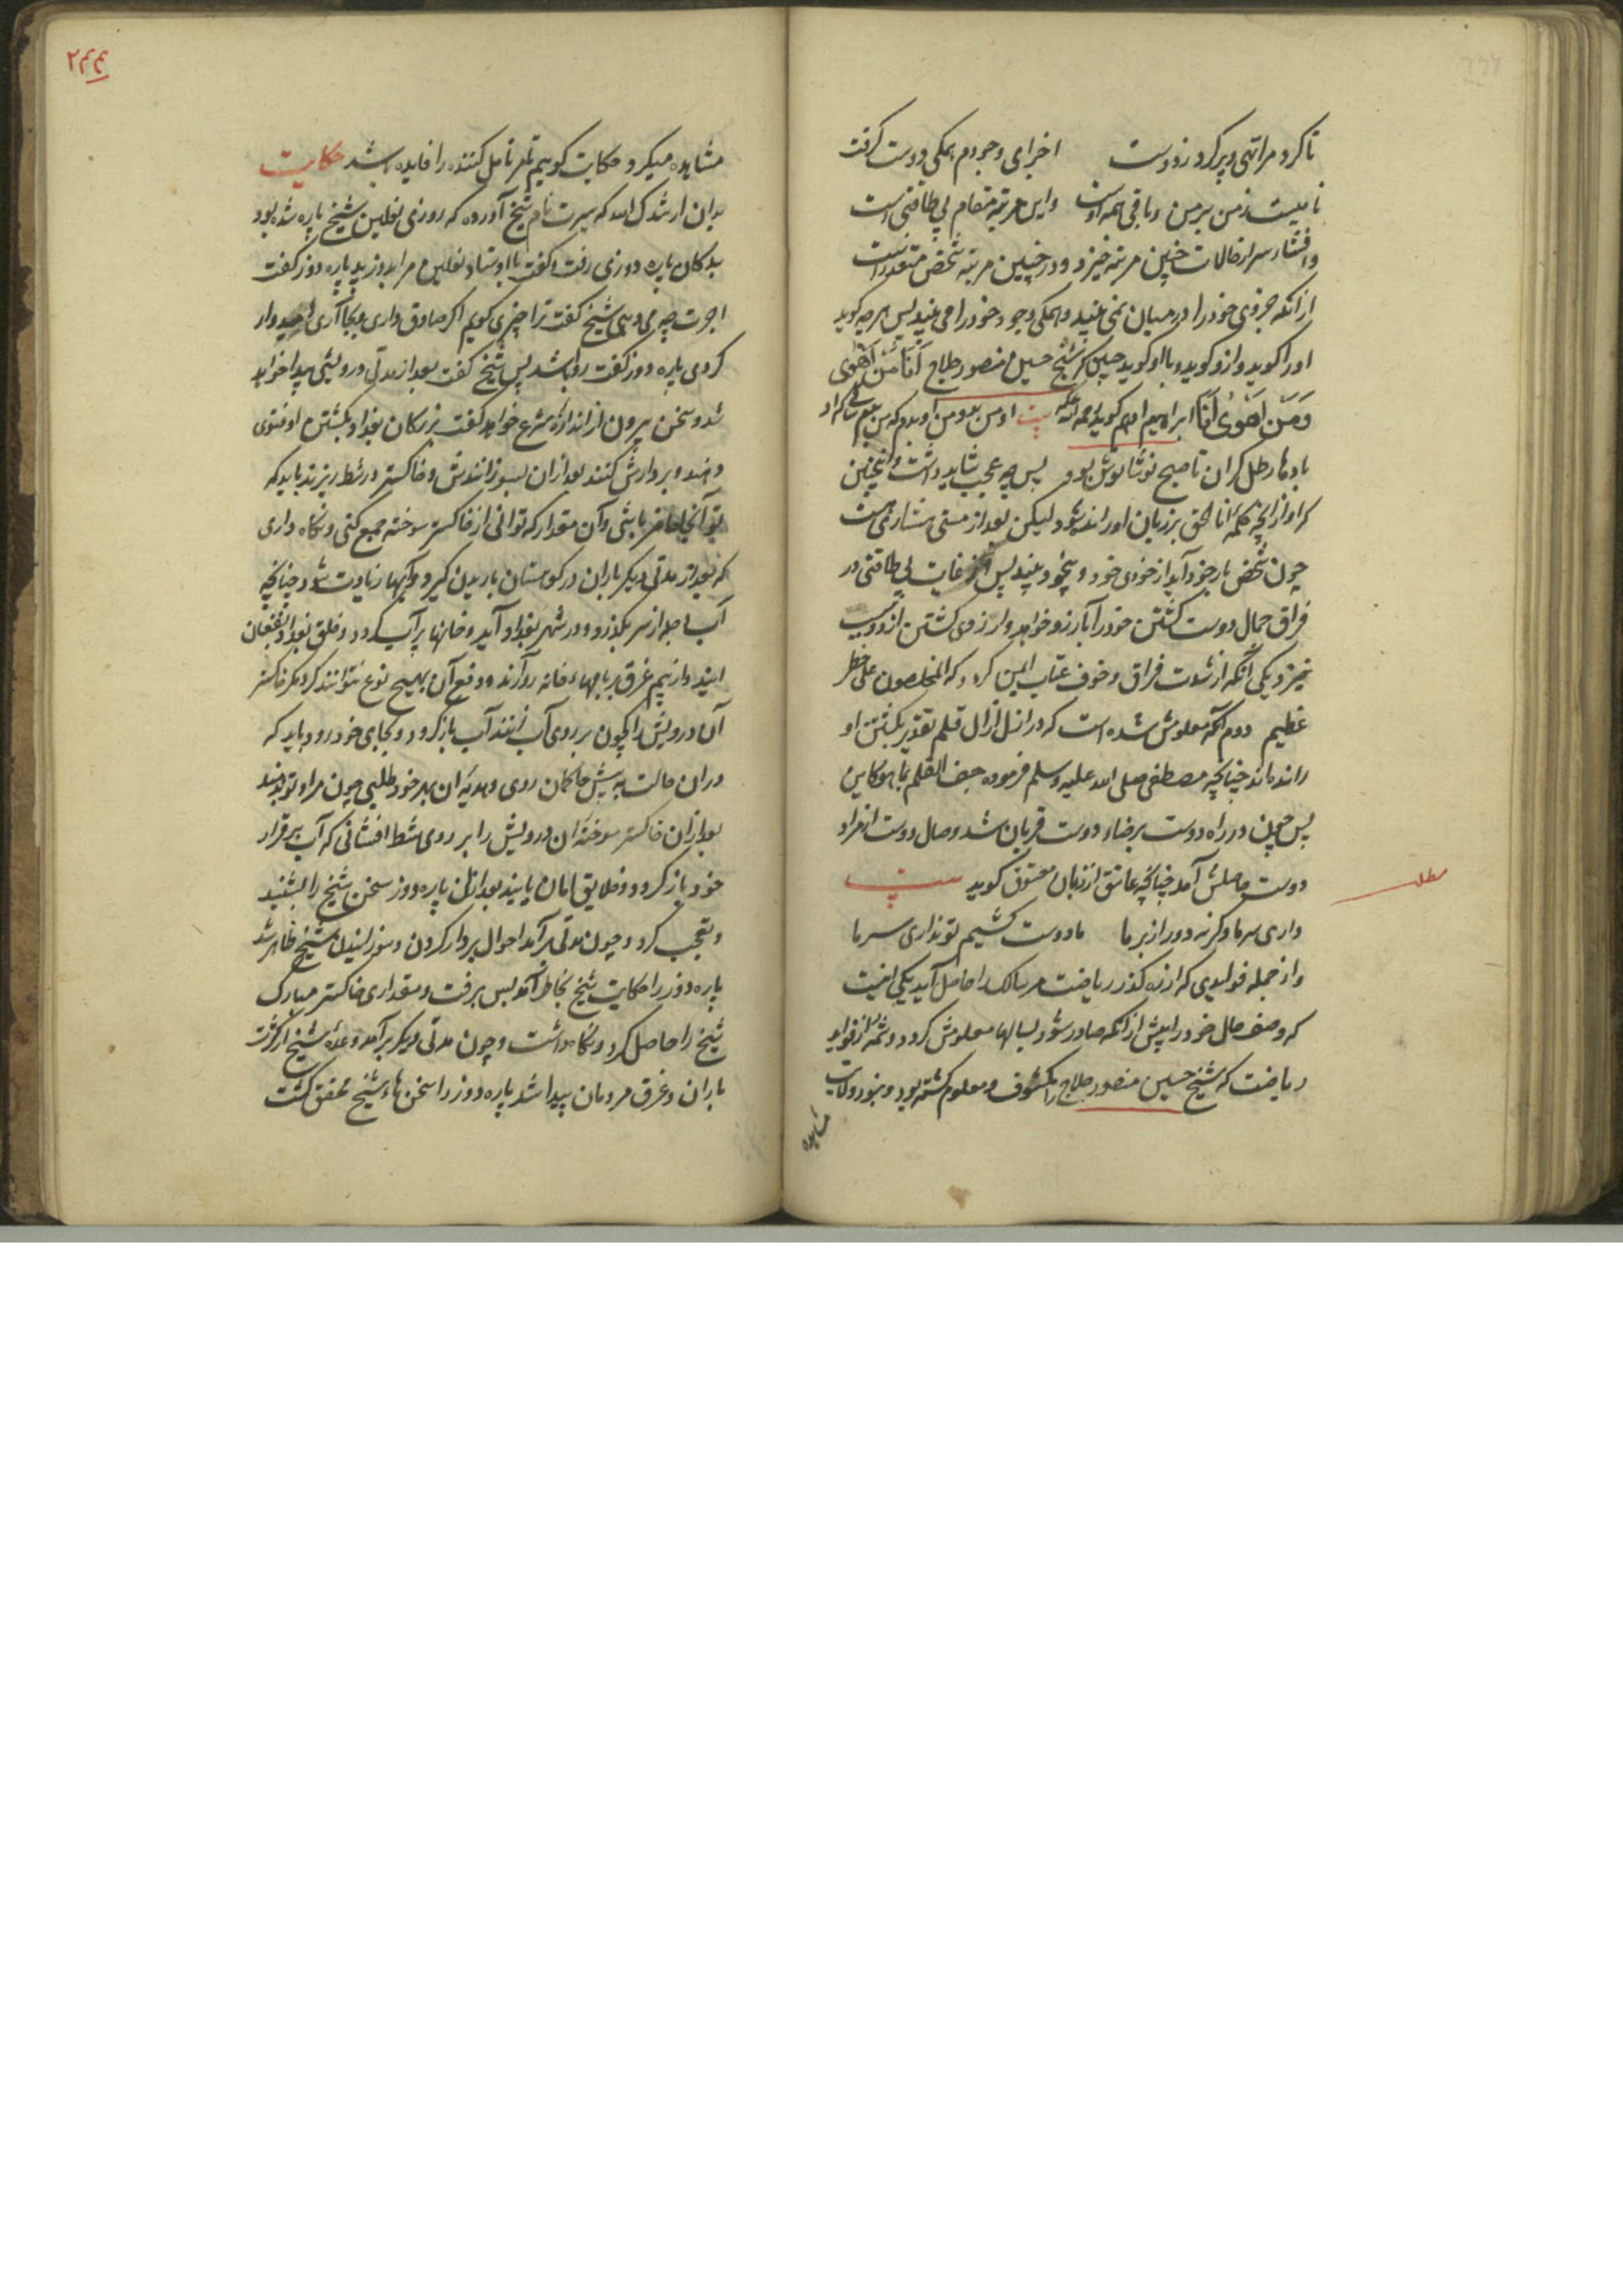 تا کرد مرا تهی و پر کرد ز دوست اجزای وجودم همگی دوست گرفت
نامیست ز من بر من و باقی همه اوست و این مرتبه مقام بی طاقتی است
و افشاء سر از حالات چنین مرتبه خیزد و در چنین مرتبه شخص متعذر است
از آنکه جزوی خود را در میان نمی بیند و همکی وجود خود را می بیند پس هر چه کوید
او را کوید و ازو کوید و با او کوید چنین که شیخ حسین منصور حلاج اَنَا مَنْ اَهْوی
وَمَن اَهْوی اَنَا ابراهیم ادهم کوید رحمة الله علیه بیت او من بد و من او بدم که من
بادها رطل کران تا صبح نوشانوش بود پس چه عجب شاید داشت
کر او را کلمه انا الحق بر زبان او رانده شود لیکن بعد از مستی هشیاری هست
چون شخص باز خود آید از خودی خود و بیخود بیند پس از غایت بی طاقتی در
فراق جمال دوست کشتن خود را آرزو خواهد و آرزوی کشتن از دو سبب
خیزد یکی آنکه از شدت فراق و خوف عتاب ایمن کردد که المخلصون علی خطر
عظیم دوم آنکه معلومش شده است که در ازل آزال قلم تقدیر بکشتن او
رانده اند چنانچه مصطفی صلی الله علیه وسلم فرموده جف القلم بما هو کاین
پس چون در راه دوست برضاء دوست قربان شد وصال دوست از مراد
دوست حاصلش آمد چنانچه عاشق از زبان معشوق کوید بیت
داری سر ما وکرنه دور از بر ما ما دوست کشیم تو نداری سر ما
و از جمله فوایدی که از ره کذر ریاضت مر سالک را حاصل آید یکی اینست
که وصف حال خود را پیش از آنکه صادر شود بسالها معلومش کردد و شمه از فواید
ریاضت که شیخ حسین منصور حلاج را مکشوف و معلوم کشته بود و بنور ولایت
مشاهده
مطلب
۲۴۴
مشاهده میکرد حکایت کوییم تا مر تامل کننده را فایده باشد حکایت
بدان ارشدک الله که سیرت نام شیخ آورده که روزی نعلین شیخ پاره شده بود
بدکان پاره دوزی رفت و کفت یا اوستاد نعلین مرا بدوز پاره دوز کفت
اجرت چه می دهی شیخ کفت ترا چیزی کویم اکر صادق داری و بجا آری امیدوار
کردی پاره دوز کفت روا باشد پس شیخ کفت بعد از مدتی درویشی پیدا خواهد
شد و سخن بیرون از اندازه شرع خواهد کفت بزرکان بغداد بکشتن او فتوی
دهند و بر دارش کنند بعد از ان بسوزانندش و خاکستر در شط ریزند باید که
تو آنجا حاضر باشی و آن مقدار که توانی از خاکستر سوخته جمع کنی و نکاه داری
که بعد از مدتی دیکر باران در کوهستان باریدن کیرد و آبها زیادت شود چنانچه
آب دجله از سر بکذرد و در شهر بغداد آید و خانها پر آب کردد و خلق بغداد بفغان
آیند و از بیم غرق ببامهاء خانه روآرند و دفع آن بهیچ نوع نتوانند کرد مکر خاکستر
آن درویش را چون بر روی آب زنند آب باز کردد و بجای خود رود باید که
در ان حالت پیش حاکمان روی و هدیه ان بهر خود طلبی چون مراد تو بدهند
بعد از ان خاکستر سوخته ان درویش را بر روی شط افشانی که آب بر قرار
خود باز کردد و خلایق امان یابند بعد از ان پاره دوز سخن شیخ را بشنید
و تعجب کرد و چون مدتی برآمد احوال بر دار کردن و سوزانیدن شیخ ظاهر شد
پاره دوز را حکایت شیخ بخاطر آمد پس برفت و مقداری خاکستر مبارک
شیخ را حاصل کرد و نکاه داشت و چون مدتی دیکر برآمد وعده شیخ از کثرت
باران و غرق مردمان پیدا شد پاره دوز را سخن هاء شیخ محقق کشت